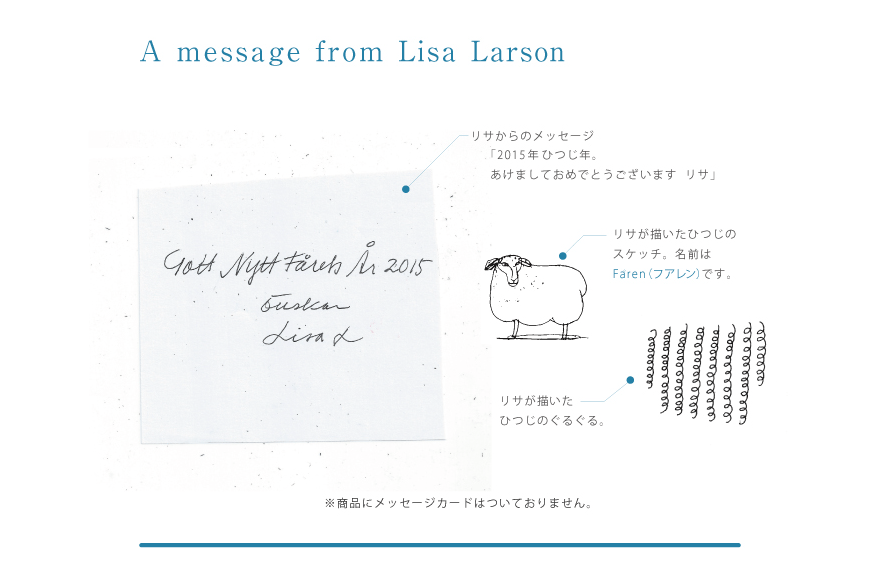 A message from Lisa Larson
リサからのメッセージ
「2015年ひつじ年。
あけましておめでとうございます リサ」
Gott Nytt Fårets År 2015
önskar
Lisa L
リサが描いたひつじの
スケッチ。名前は
Faren（フアレン）です。
リサが描いた
ひつじのぐるぐる。
※商品にメッセージカードはついておりません。